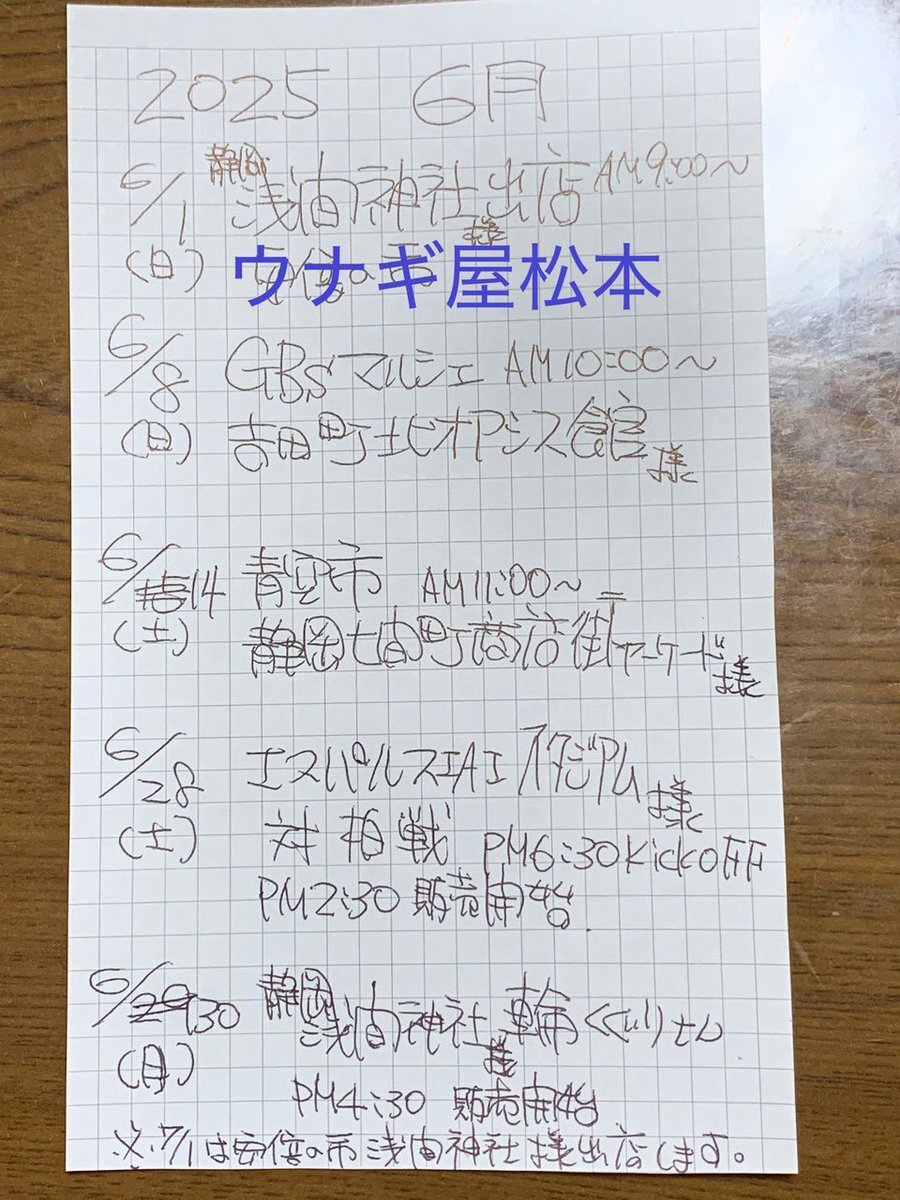 2025 6月
6/1 静岡浅間神社様出店 AM9:00〜
(日) 安倍の市
ウナギ屋松本
6/8 GBsマルシェ AM10:00〜
(日) 吉田町北オアシス館様
6/14 青空市 AM11:00〜
(土) 静岡七間町商店街アーケード様
6/28 エスパルスIAIスタジアム様
(土) 対 柏戦 PM6:30 KickOFF
PM2:30 販売開始
6/30 静岡浅間神社様 輪くぐりさん
(月)
PM4:30 販売開始
※7/1は安倍の市浅間神社様出店します。